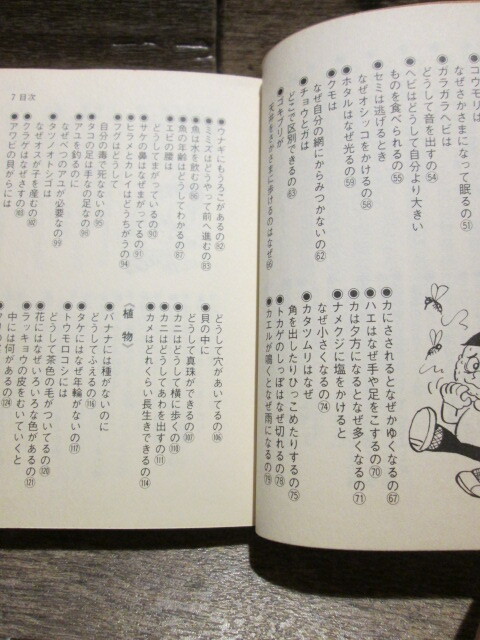 ●コウモリは
なぜさかさまになって眠るの51
●ガラガラヘビは
どうして音を出すの54
●ヘビはどうして自分より大きい
ものを食べられるの55
●セミは逃げるとき
なぜオシッコをかけるの58
●ホタルはなぜ光るの59
●クモは
なぜ自分の網にからみつかないの62
●チョウとガは
どこで区別できるの63
●ゴキブリが
天井をさかさまに歩けるのはなぜ
●カにさされるとなぜかゆくなるの67
●ハエはなぜ手や足をこするの70
●カは夕方になるとなぜ多くなるの71
●ナメクジに塩をかけると
なぜ小さくなるの74
●カタツムリはなぜ
角を出したりひっこめたりするの75
●トカゲのしっぽはなぜ切れるの78
●カエルが鳴くとなぜ雨になるの79
7 目次
●ウナギにもうろこがあるの82
●ミミズはどうやって前へ進むの83
●魚は水を飲むの86
●魚の年齢はどうしてわかるの87
●エビの腰は
どうしてまがっているの90
●サケの鼻はなぜまがってるの91
●ヒラメとカレイはどうちがうの94
●フグはどうして
自分の毒で死なないの95
●タコの足は手なの足なの98
●アユを釣るのに
なぜべつのアユが必要なの99
●タツノオトシゴは
なぜオスが子を産むの102
●クラゲはなぜさすの103
●アワビの貝がらには
どうして穴があいてるの106
●貝の中に
どうして真珠ができるの107
●カニはどうして横に歩くの110
●カニはどうしてあわを出すの111
●カメはどれくらい長生きできるの114
〈植物〉
●バナナには種がないのに
どうしてふえるの116
●タケにはなぜ年輪がないの117
●トウモロコシには
どうして茶色の毛がついてるの120
●花にはなぜいろいろな色があるの121
●ラッキョウの皮をむいていくと
中には何があるの124